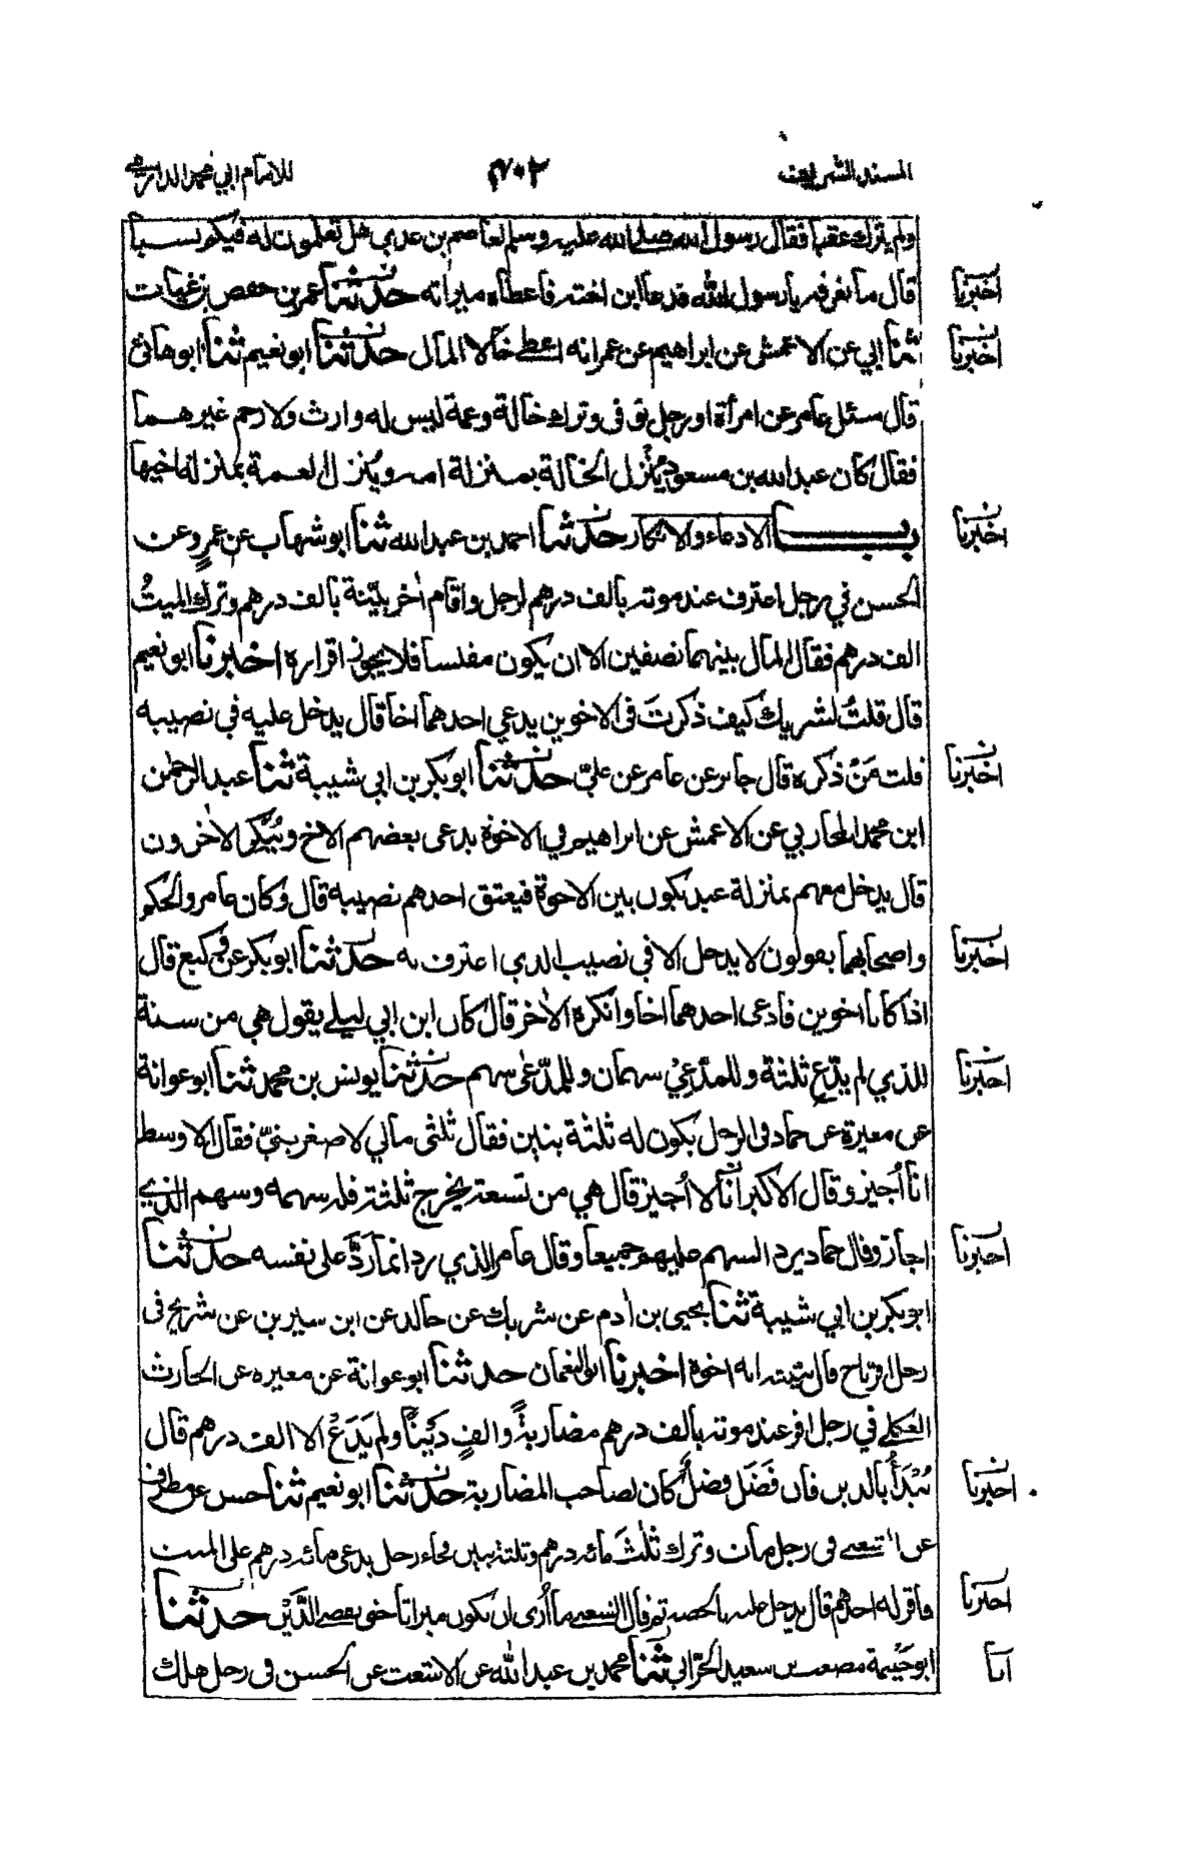 المسند الشريف ٤٠٢ للامام ابي محمد الدارمي
ولم يترك عقبا فقال رسول الله صلى الله عليه وسلم لعاصم بن عدي هل تعلمون له فيكم نسبا
قال ما نعرفه يا رسول الله فدعا ابن اخته فاعطاه ميراثه حدثنا عمر بن حفص بن غياث
اخبرنا
ثنا ابي عن الاعمش عن ابراهيم عن عمر انه اعطى خالا المال حدثنا ابو نعيم ثنا ابو هانئ
اخبرنا
قال سئل عامر عن امرأة او رجل توفى وترك خالة وعمة ليس له وارث ولا رحم غيرهما
فقال كان عبد الله بن مسعود يُنْزل الخالة بمنزلة امه ويُنزل العمة بمنزلة اخيها
باب الادعاء والانكار حدثنا احمد بن عبد الله ثنا ابو شهاب عن عمرٍو عن
اخبرنا
الحسن في رجل اعترف عند موته بالف درهم لرجل واقام اٰخر بيّنة بالف درهم وترك الميتُ
الف درهم فقال المال بينهما نصفين الا ان يكون مفلسا فلا يجوز اقراره اخبرنا ابو نعيم
قال قلتُ لشريك كيف ذكرتَ في الاخوين يدعي احدهما اخا قال يدخل عليه في نصيبه
قلت مَنْ ذكره قال جابر عن عامر عن عليّ حدثنا ابو بكر بن ابي شيبة ثنا عبد الرحمٰن
اخبرنا
ابن محمد المحاربي عن الاعمش عن ابراهيم في الاخوة يدعى بعضهم الاخ ويُنكر الاٰخرون
قال يدخل معهم بمنزلة عبد يكون بين الاخوة فيعتق احدهم نصيبه قال وكان عامر والحكم
واصحابهما يقولون لا يدخل الا في نصيب الذي اعترف به حدثنا ابو بكر عن وكيع قال
اخبرنا
اذا كانا اخوين فادعى احدهما اخا وانكره الاٰخر قال كان ابن ابي ليلى يقول هي من ستة
للذي لم يدّع ثلثة وللمدّعِيْ سهمان وللمدّعٰى سهم حدثنا يونس بن محمد ثنا ابو عوانة
اخبرنا
عن مغيرة عن حماد في الرجل يكون له ثلثة بنين فقال ثلثى مالي لاصغر بنيّ فقال الاوسط
انا اُجيز وقال الاكبر انا لا اُجيز قال هي من تسعة يخرج ثلثه فله سهمه وسهم الذي
اجاز وقال حماد يرد السهم عليهم جميعا وقال عامر الذي رد انما رَدَّ على نفسه حدثنا
اخبرنا
ابو بكر بن ابي شيبة ثنا يحيى بن اٰدم عن شريك عن خالد عن ابن سيرين عن شريح في
رجل اقر باخ قال بينته انه اخوه اخبرنا ابو النعمان حدثنا ابو عوانة عن مغيره عن الحارث
العكلي في رجل اقر عند موته بالف درهم مضاربةً والفٍ دَيْنًا ولم يَدَعْ الا الف درهم قال
يُبْدَأُ بالدين فان فَضَل فضلٌ كان لصاحب المضاربة حدثنا ابو نعيم ثنا حسن عن مطرف
اخبرنا
عن الشعبي في رجل مات وترك ثلٰثَ مائه درهم وثلثة بنين فجاء رجل يدعى مائه درهم على الميت
فاقر له احدهم قال يدخل عليه بالحصه ثم قال الشعبي ما اُرى ان يكون ميراثا حتى يقضى الدَّيْن حدثنا
اخبرنا
ابو خَيْثمة مصعب بن سعيد الحرّاني ثنا محمد بن عبد الله عن الاشعث عن الحسن في رجل هلك
انا